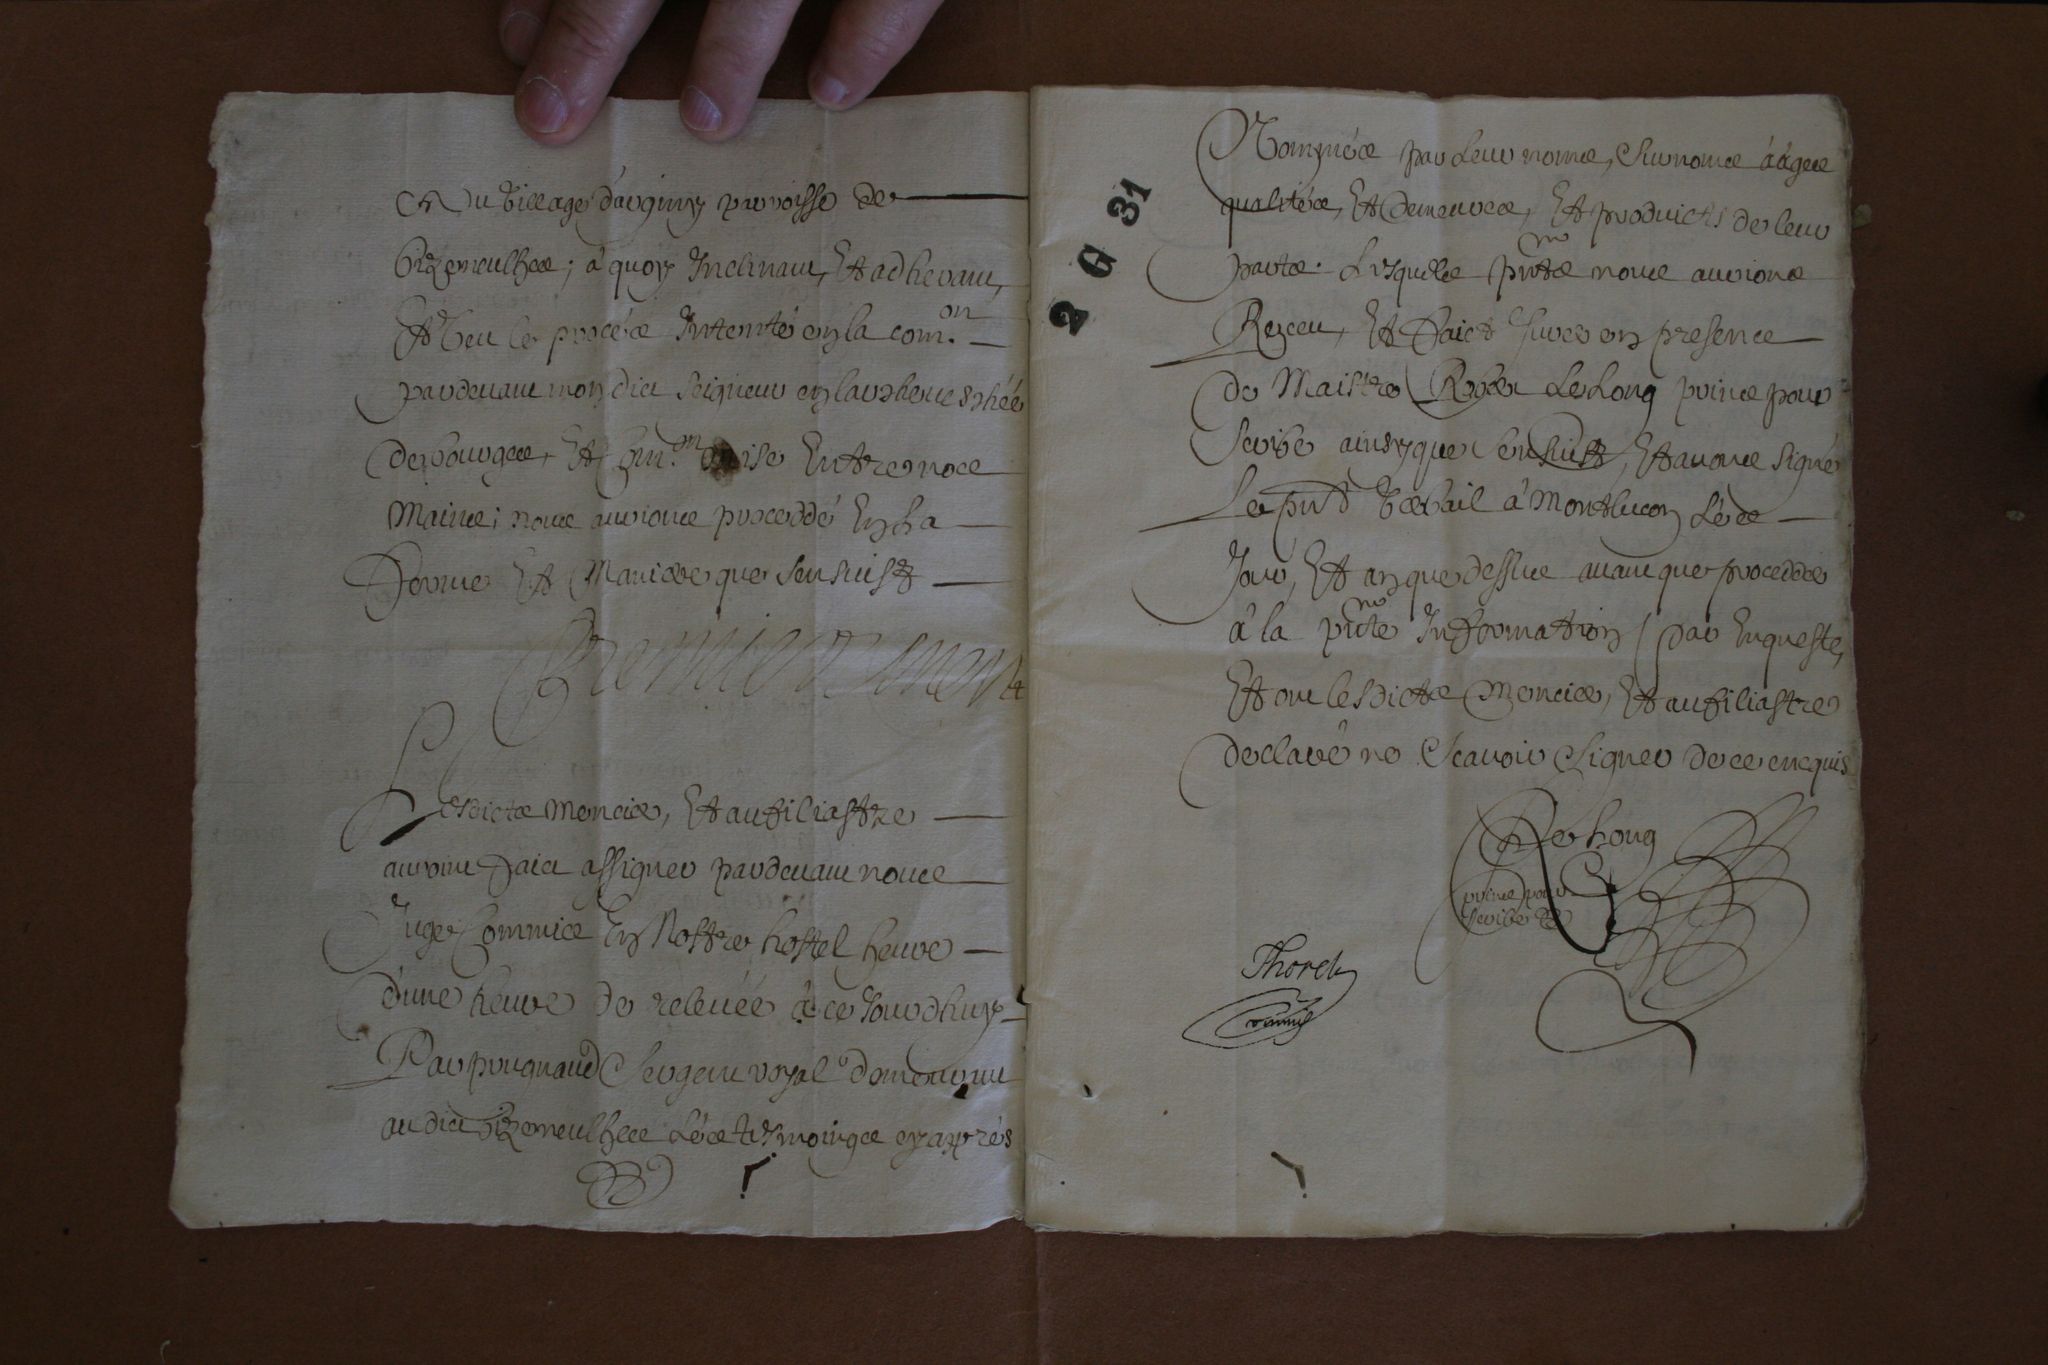 du village d'augimy parroisse de
bizeneulhes; à quoy Inclinant, Et adherant,
Et veu le procés Intenté en la com.on
pardevant mon dict seigneur
de bourges, Et Com.on mise Entre nos
Mains; nous aurions proceddé En la
Forme Et Maniere que sensuist
Premierement
Lesdicts Mencier, Et aufiliastre
auroint Faict assigner pardevant nous
Juge Commis En Nostre hostel heure
d'une heure de relevée à ce Jourdhuy
Par prugnaud Sergent royal demeurant
audict bizeneulhes Les tesmoings cy après
2 G 31
Nommés par leur noms, Surnoms aages
qualités, Et demeures, Et produicts de leur
parts. Lesquels pnts nous aurions
Receu, Et Faict Jurer en presence
de Maistre Rober LeLong prins pour
scribe ainsy que sensuist, Et avons signé
Le pnt verbail à Montlucon Les
Jour, Et an que dessus avant que procedder
à la pnte Information par Enqueste,
Et ont lesdicts Mencier, Et aufiliastre
declaré ne Scavoir Signer de ce enquis
LeLong
prins pour
scribe
Thoret
commis